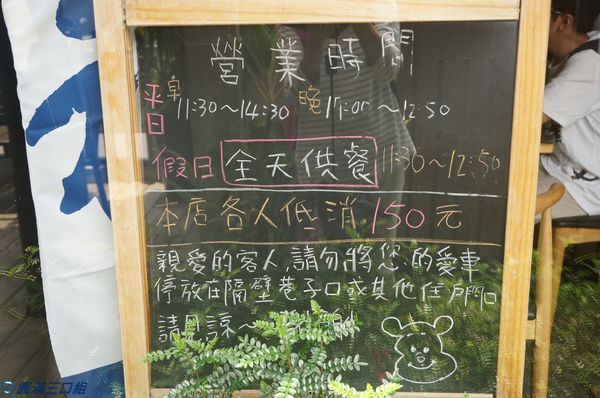 營業時間
平日 早 11:30～14:30 晚 17:00～12:50
假日 全天供餐 11:30～12:50
本店各人低消 150元
親愛的客人,請勿將您的愛車
停放在隔壁巷子口或其他住戶門口
請見諒～
圓滿三口組